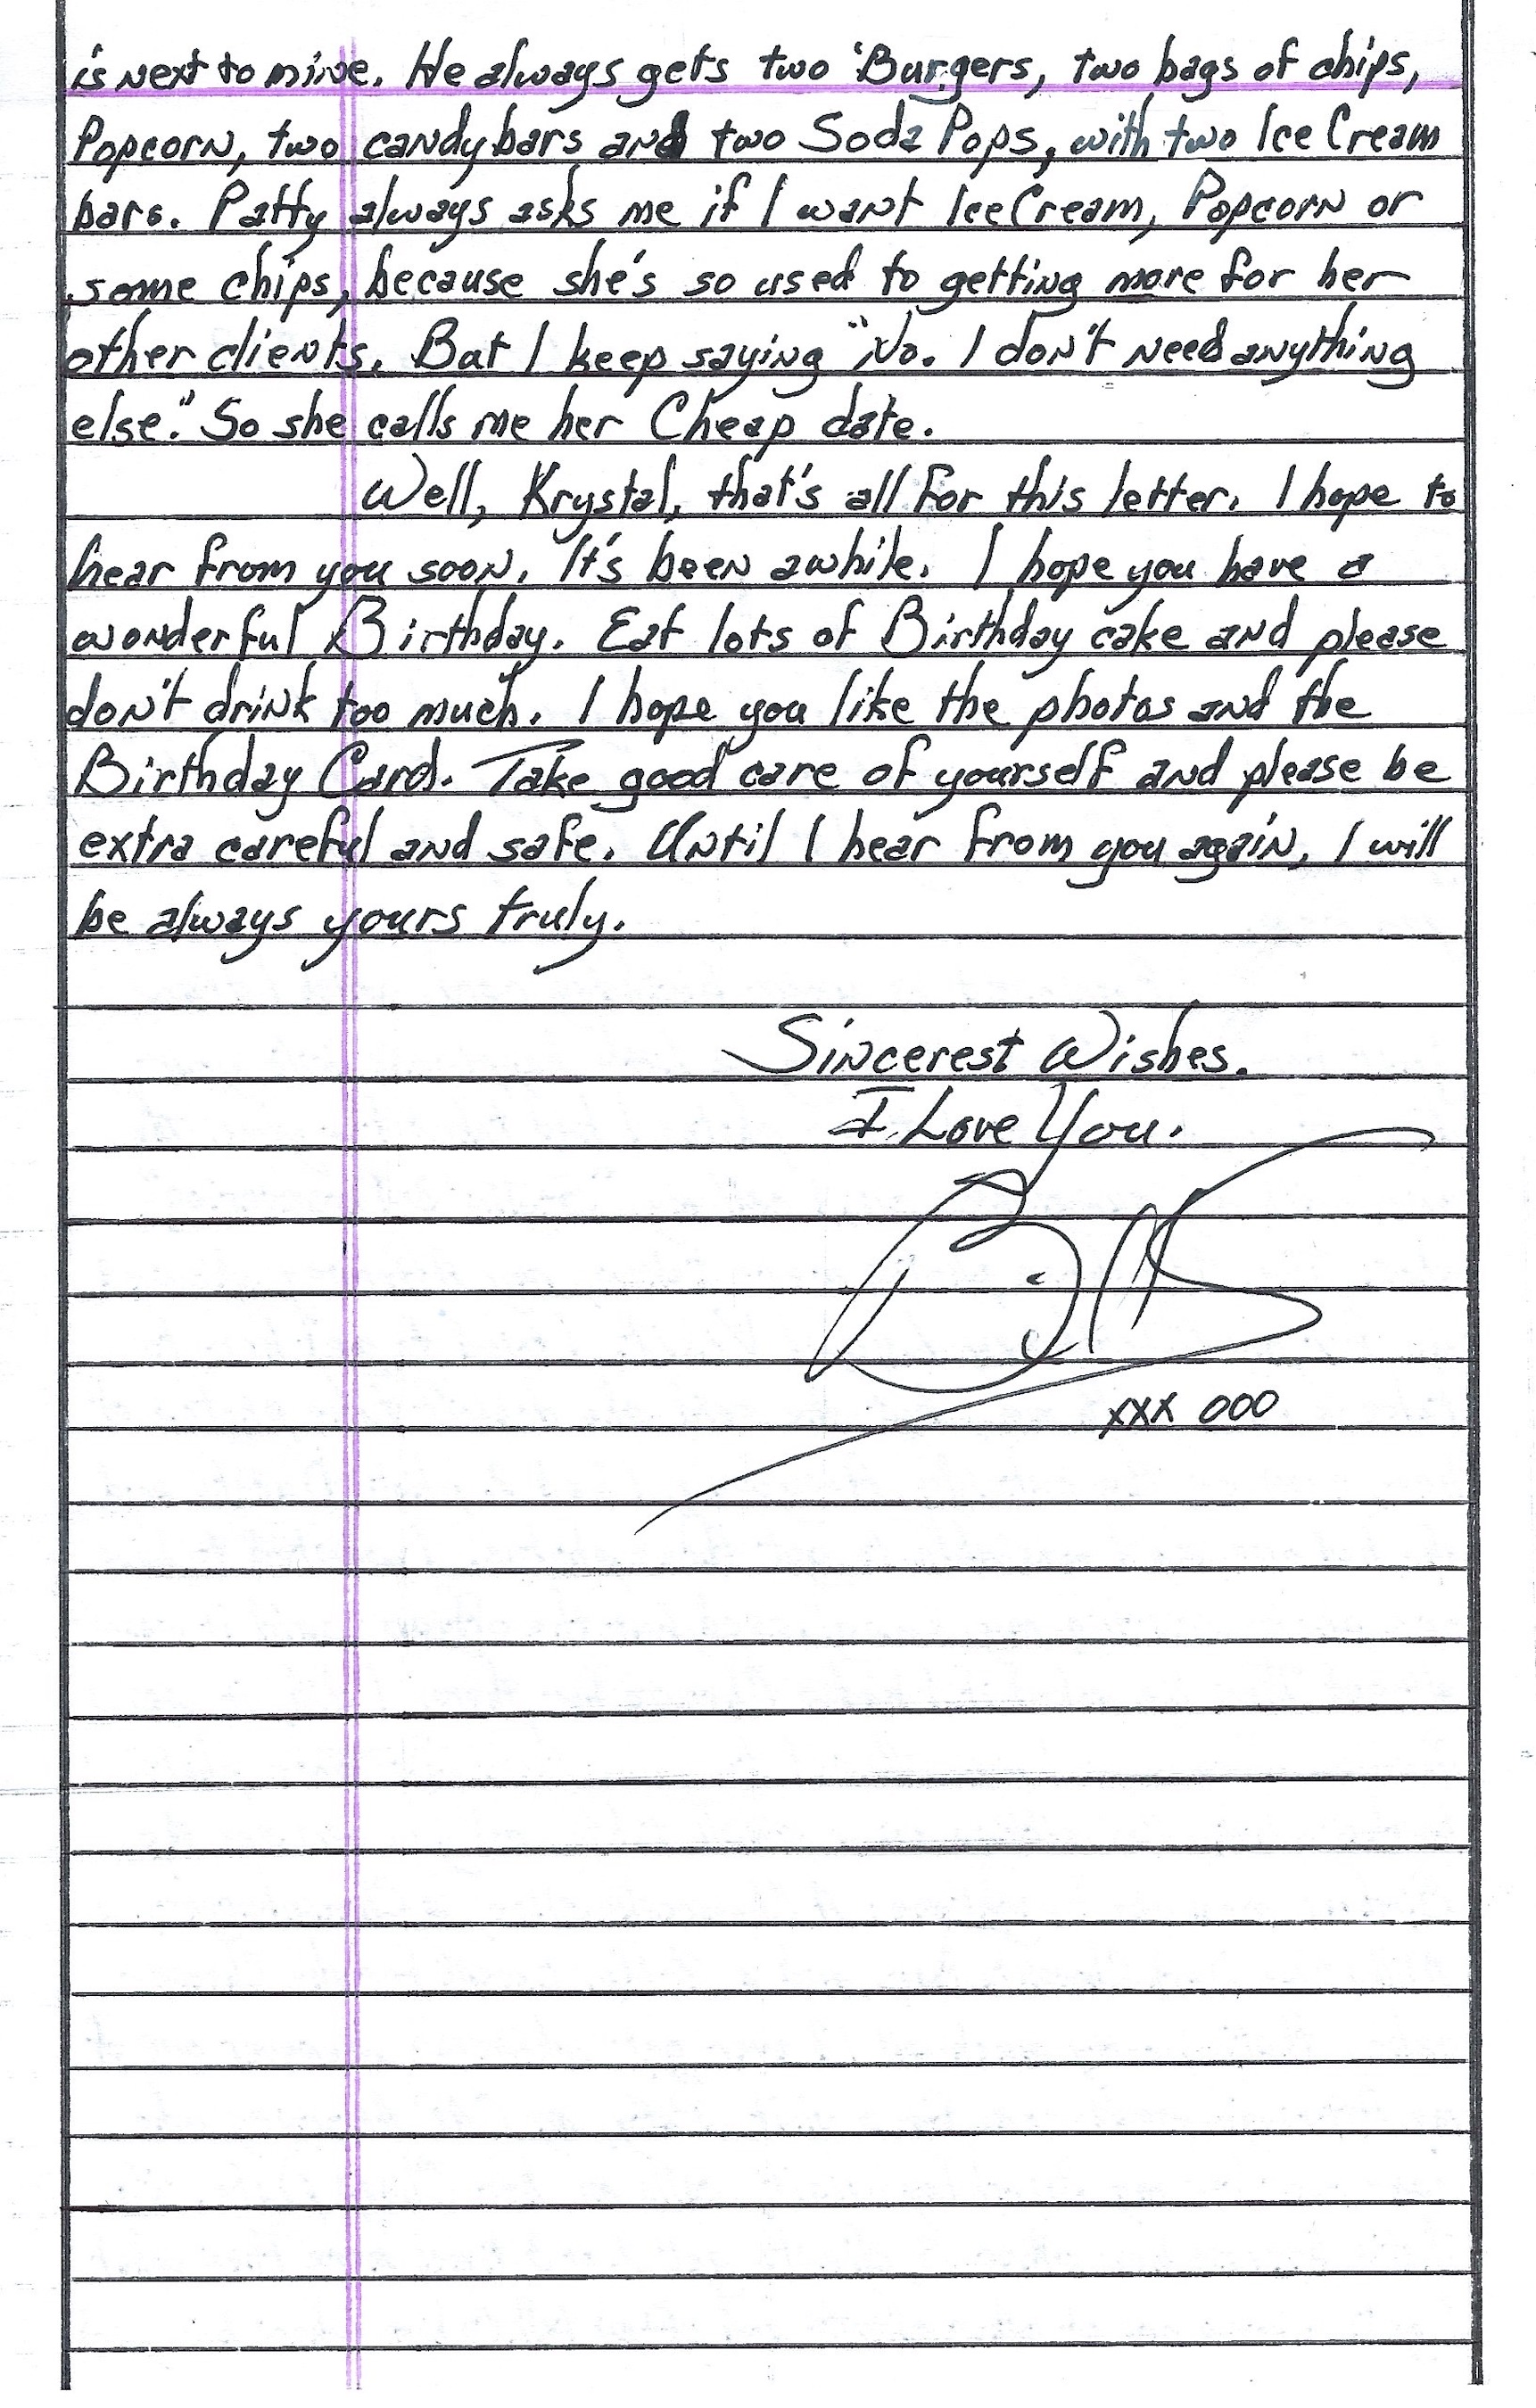 is next to mine. He always gets two Burgers, two bags of chips,
Popcorn, two candybars and two Soda Pops, with two Ice Cream
bars. Patty always asks me if I want Ice Cream, Popcorn or
some chips, because she's so used to getting more for her
other clients. But I keep saying "No. I don't need anything
else." So she calls me her Cheap date.
Well, Krystal, that's all for this letter. I hope to
hear from you soon. It's been awhile. I hope you have a
wonderful Birthday. Eat lots of Birthday cake and please
don't drink too much. I hope you like the photos and the
Birthday Card. Take good care of yourself and please be
extra careful and safe. Until I hear from you again, I will
be always yours truly.
Sincerest Wishes.
I Love You.
Bill
xxx ooo